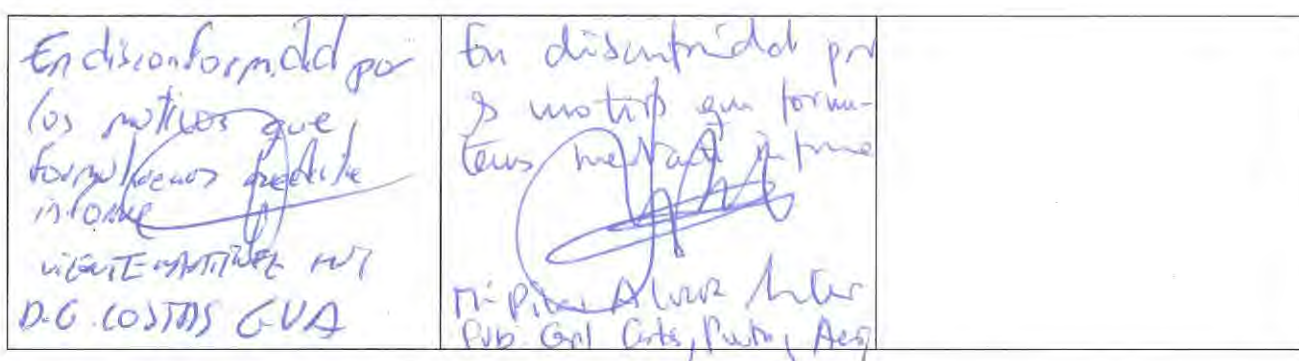 En disconformidad por
los motivos que
formularemos mediante
informe
VICENTE MARTINEZ
D.G. COSTAS GVA
En disconformidad por
motivos que formu-
mediante informe
Mª Pilar Alvarez